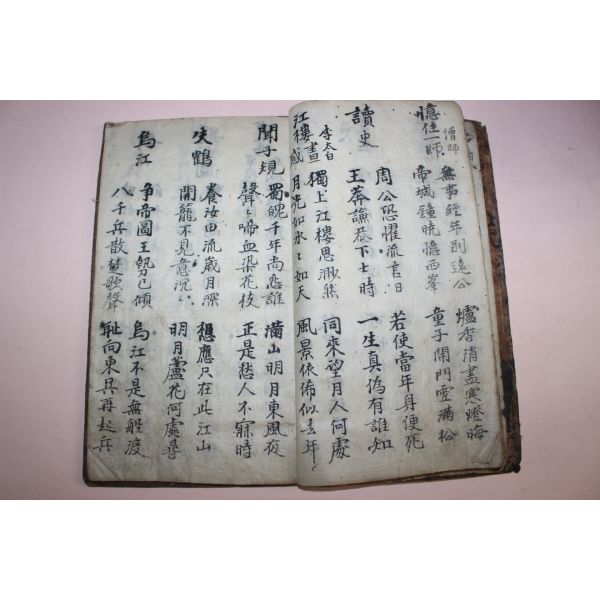 憶住一師
僧師
無事經年別遠公
帝城鐘曉憶西峯
爐香消盡寒燈晦
童子開門雪滿松
讀史
周公恐懼流言日
王莽謙恭下士時
若使當年身便死
一生真偽有誰知
江樓畫感
李太白
獨上江樓思渺然
月光如水〻如天
同來望月人何處
風景依俙似去年
聞子規
蜀魄千年尚怨誰
聲〻啼血染花枝
滿山明月東風夜
正是愁人不寐時
失鶴
養汝由流歲月深
開籠不見意沉〻
想應只在此江山
明月蘆花何處尋
烏江
爭帝圖王勢已傾
八千兵散楚歌聲
烏江不是無船渡
恥向東吳再起兵